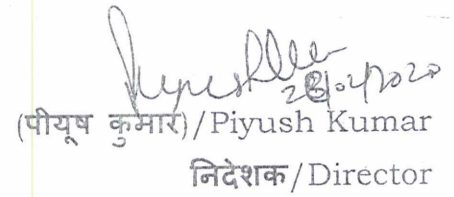 28/02/2020
(पीयूष कुमार)/Piyush Kumar
निदेशक/Director